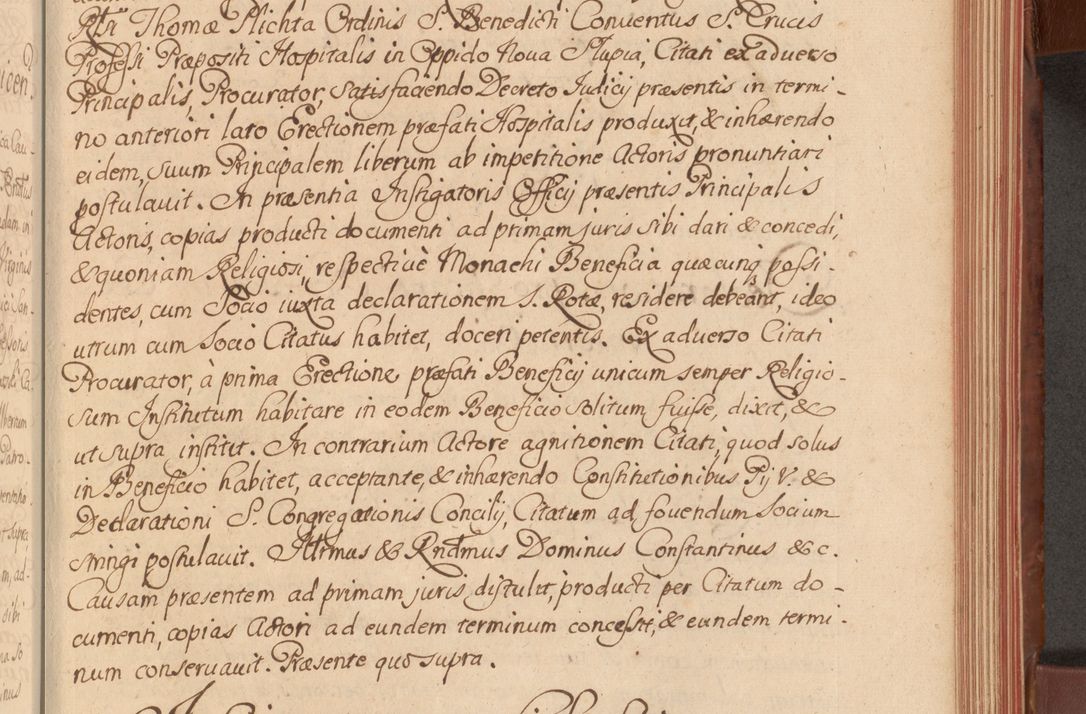 Rsi Thomæ Plichta Ordinis S. Benedicti Conventus S. Crucis
Professi Præpositi Hospitalis in Oppido Nova Slupia, Citati ex adverso
Principalis, Procurator, satisfaciendo Decreto Judicij præsentis in termi-
no anteriori lato Erectionem præfati Hospitalis produxit, & inhærendo
eidem, suum Principalem liberum ab impetitione Actoris pronuntiari
postulavit. In præsentia Instigatoris Officij præsentis Principalis
Actoris, copias producti documenti ad primam juris sibi dari & concedi,
& quoniam Religiosi, respectivè Monachi Beneficia quæcunq possi-
dentes, cum Socio iuxta declarationem S. Rotæ, residere debeant, ideo
utrum cum Socio Citatus habitet, doceri petentis. Ex adverso Citati
Procurator, à prima Erectione præfati Beneficij unicum semper Religio-
sum Institutum habitare in eodem Beneficio solitum fuisse, dixit, &
ut supra institit. In contrarium Actore agnitionem Citati, quod solus
in Beneficio habitet, acceptante, & inhærendo Constitutionibus Pij V. &
Declarationi S. Congregationis Concilij, Citatum ad fovendum Socium
stringi postulavit. Illtmus & Rndmus Dominus Constantinus &c.
Causam præsentem ad primam juris distulit, producti per Citatum do-
cumenti, copias Actori ad eundem terminum concessit, & eundem termi-
num conservavit. Præsente quo supra.